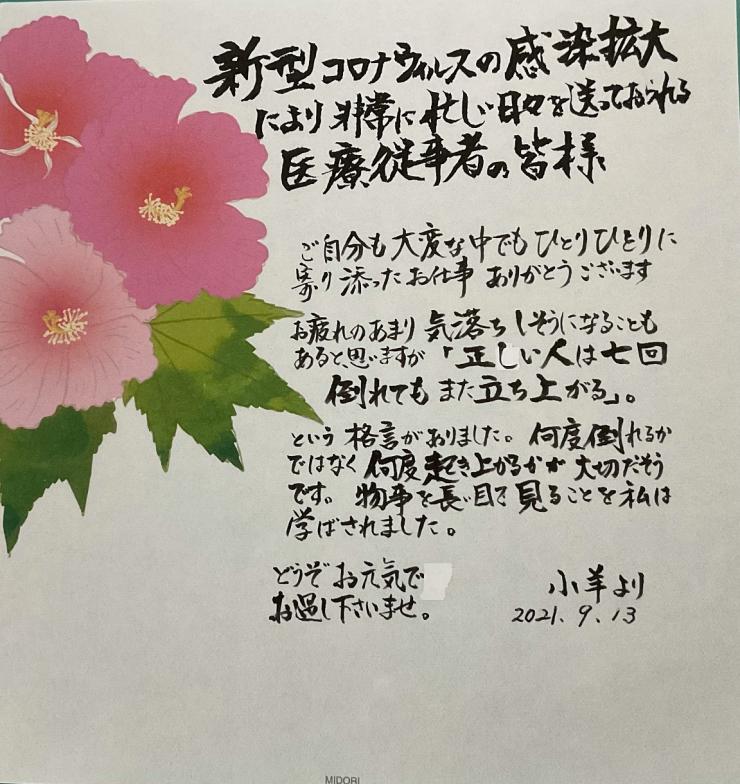 新型コロナウィルスの感染拡大
により非常に忙しい日々を送っておられる
医療従事者の皆様
ご自分も大変な中でもひとりひとりに
寄り添ったお仕事 ありがとうございます
お疲れのあまり 気落ちしそうになることも
あると思いますが「正しい人は七回
倒れてもまた立ち上がる」。
という格言がありました。何度倒れるか
ではなく何度起き上がるかが大切だそう
です。物事を長い目で見ることを私は
学ばされました。
どうぞお元気で
お過し下さいませ。
小羊より
2021.9.13
MIDORI